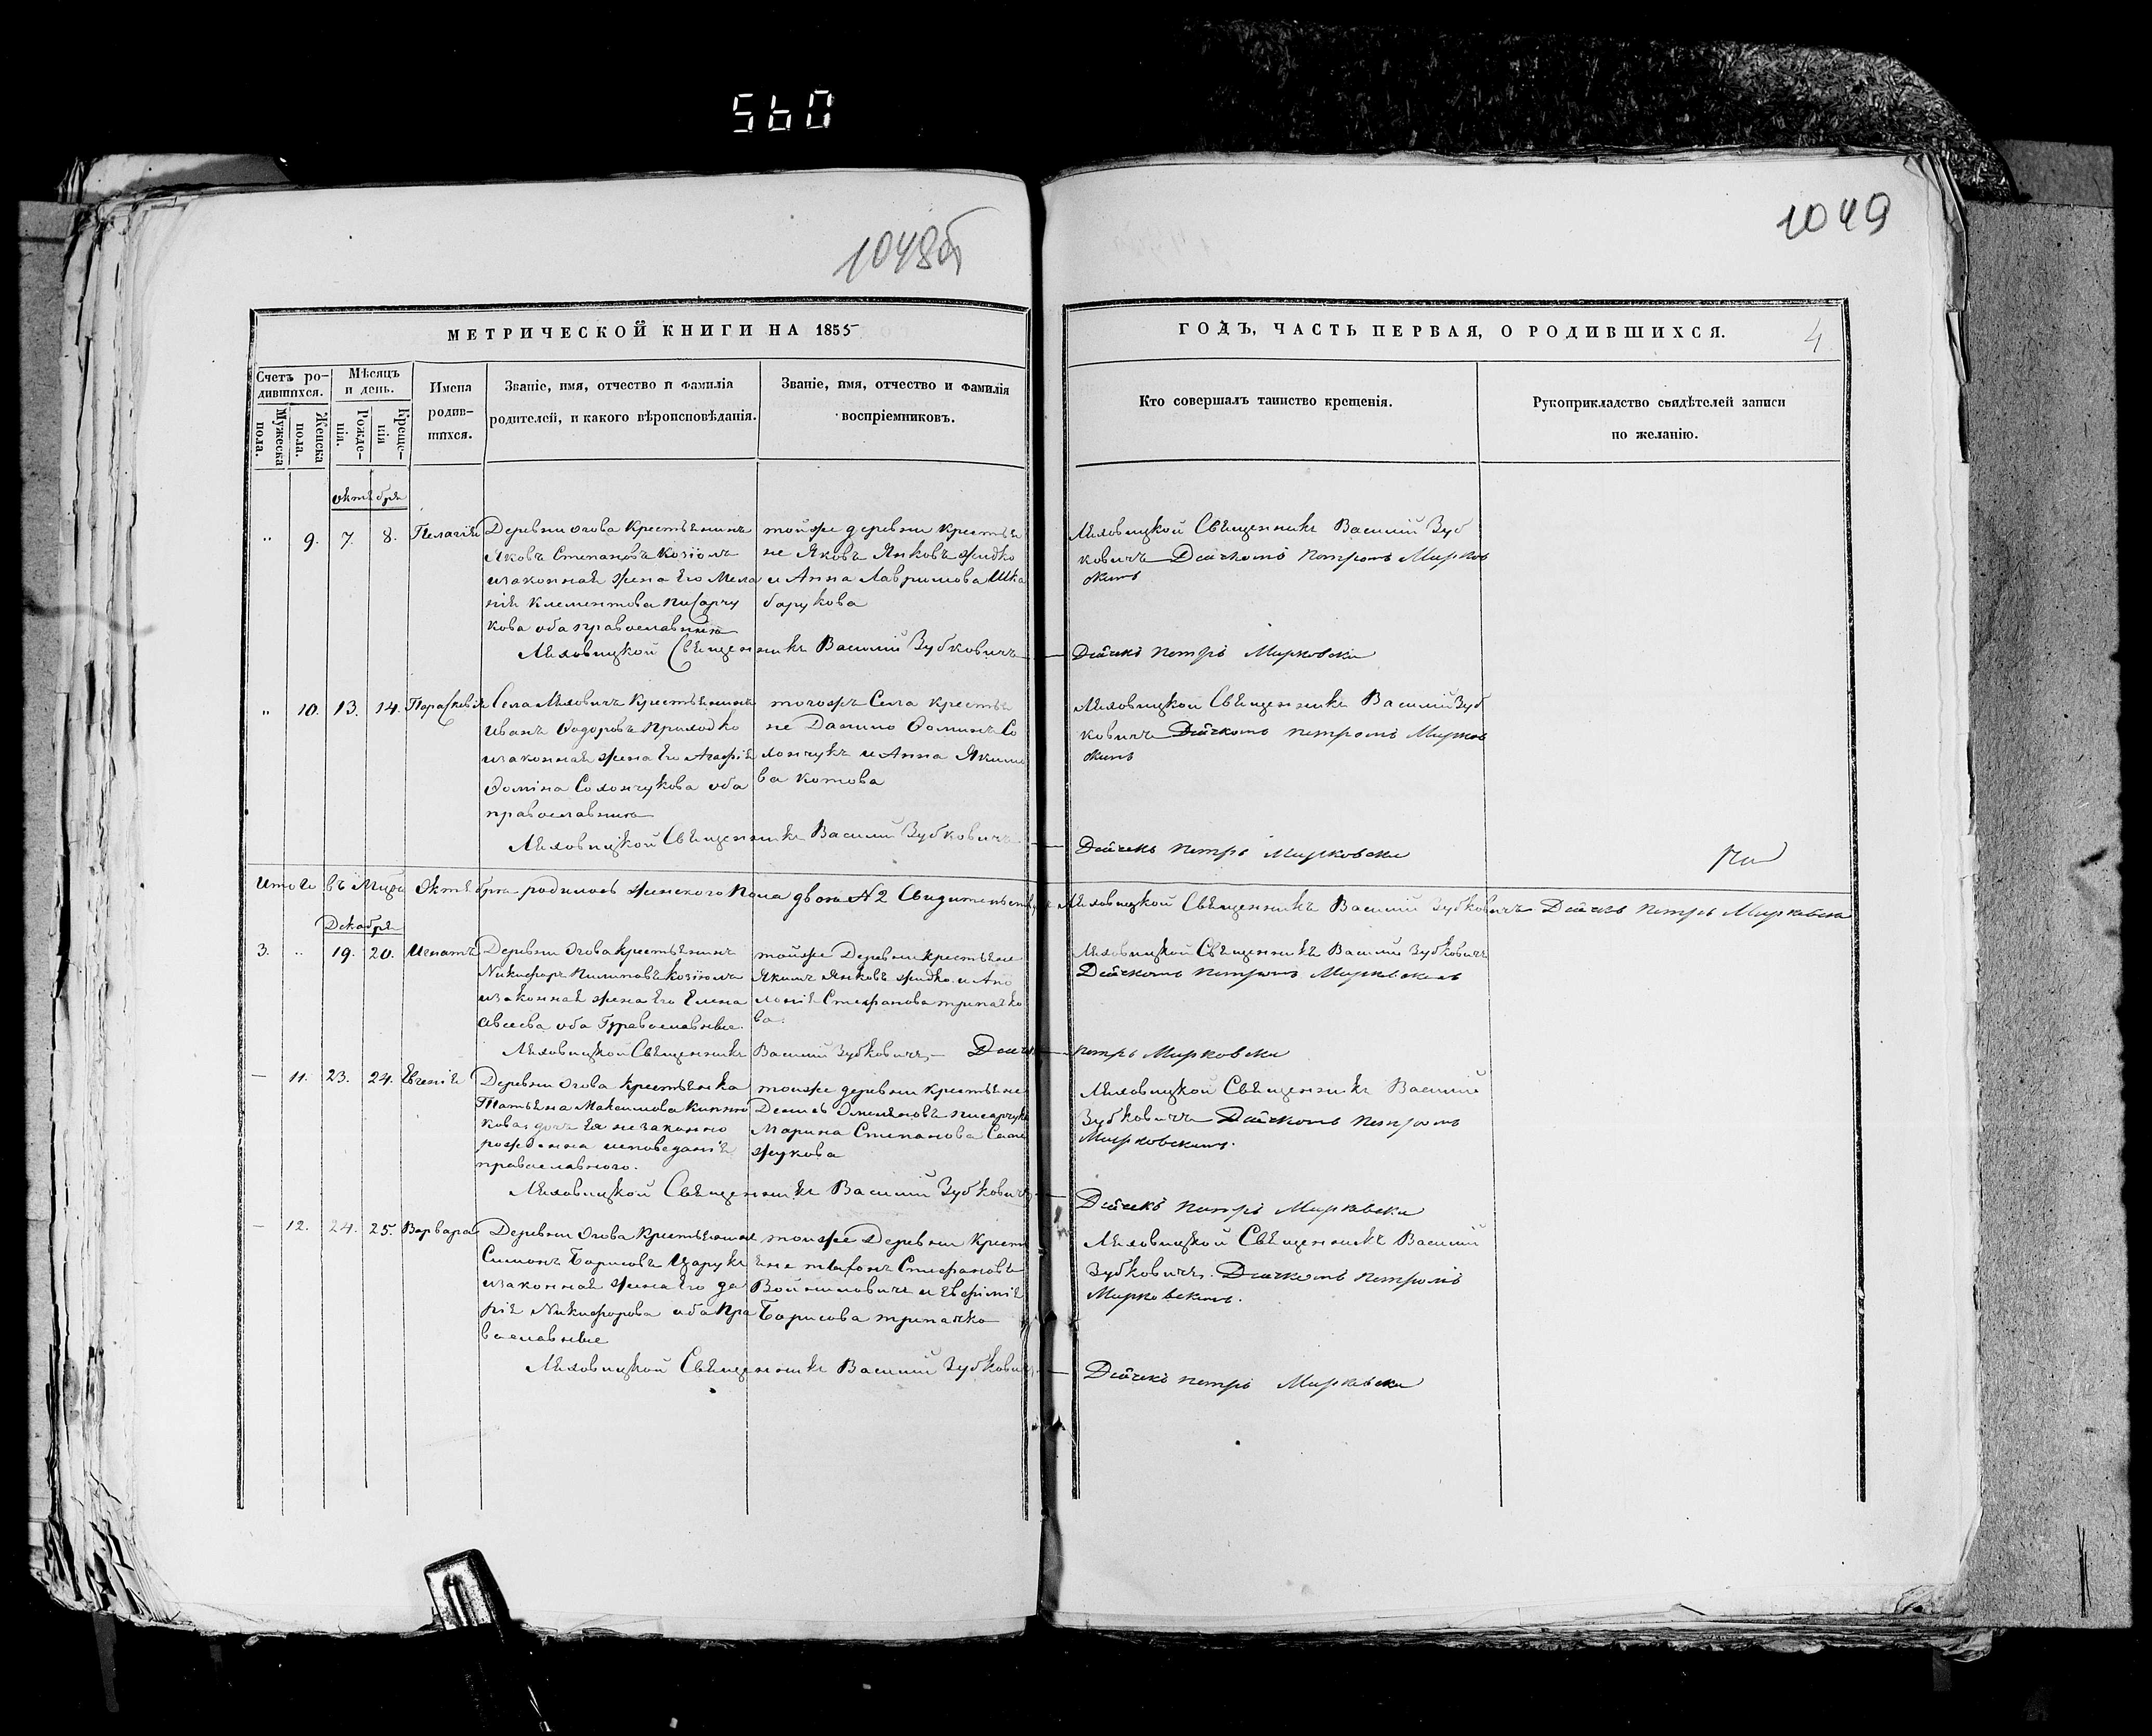 560
1048об
1049
МЕТРИЧЕСКОЙ КНИГИ НА 1855
ГОДЪ, ЧАСТЬ ПЕРВАЯ, О РОДИВШИХСЯ.
4
Счетъ ро-
дившихся.
Мѣсяцъ
и день.
Мужеска
пола.
Женска
пола.
Рожде-
нія.
Креще-
нія
Имена
родив-
шихся.
Званіе, имя, отчество и фамилія
родителей, и какого вѣроисповѣданія.
Званіе, имя, отчество и фамилія
воспріемниковъ.
Кто совершалъ таинство крещенія.
Рукоприкладство свидѣтелей записи
по желанію.
октября
„ 9. 7. 8. Пелагія
Деревни Огова Крестьянинъ
Яковъ Степановъ Козіолъ
изаконная жена Его Мела
нія Климентова Писарчу
кова оба православныя
тойже деревни Крестья
не Яковъ Янковъ Жидко
и Анна Лавринова Шка
барукова
Ляховицкой Священникъ Василий Зуб
ковичъ Дьячкомъ Петромъ Мирков
скимъ
Ляховицкой Священникъ Василий Зубковичъ
Дьячекъ Петръ Мирковски
„ 10. 13. 14. Параскевія
Села Ляховичъ Крестьянинъ
Иванъ Ѳодоровъ Приходко
изаконная жена Его Агафія
Ѳомина Солончукова оба
православныя
тогожъ Села Крестья
не Данило Ѳоминъ Со
лончукъ и Анна Якимо
ва Котова
Ляховицкой Священникъ Василий Зуб
ковичъ Дьячкомъ Петромъ Мирков
скимъ
Ляховицкой Священникъ Василий Зубковичъ
Дьячекъ Петръ Мирковски
Итого въ Октября родилось женского Пола двоя №2
Ляховицкой Священникъ Василий Зубковичъ Дьячекъ Петръ Мирковски
Декабря
3. „ 19. 20. Игнатъ
Деревни Огова крестьянинъ
Никифоръ Пилиповъ козіолъ
изаконная жена Его Елена
Авсеева оба Православные.
тойже Деревни крестьяне
Якимъ Янковъ Жидко и Апо
лонія Стефанова
ва.
Ляховицкой Священникъ Василий Зубковичъ
Дьячкомъ Петромъ Мирковскимъ
Ляховицкой Священникъ Василий Зубковичъ — Дьячекъ
Петръ Мирковски
— 11. 23. 24. Евгенія
Деревни Огова крестьянка
Татьяна Максимова
кова дочь Ея незаконно
рожденна исповеданія
православного.
тоиже деревни крестьяне
Денисъ Омеляновъ Писарчукъ
Марина Степанова
жукова
Ляховицкой Священникъ Василий
Зубковичъ Дьячкомъ Петромъ
Мирковскимъ.
Ляховицкой Священникъ Василий Зубковичъ
Дьячекъ Петръ Мирковски
— 12. 24. 25. Варвара
Деревни Огова Крестьянинъ
Симонъ Борисовъ Царукъ
изаконная жена Его Да
рія Никифорова оба Пра
вославные
тоиже Деревни Крест
яне Стефановъ
Войниловичъ и Евфимія
Борисова
Ляховицкой Священникъ Василий
Зубковичъ. Дьячкомъ Петромъ
Мирковскимъ.
Ляховицкой Священникъ Василий Зубковичъ
Дьячекъ Петръ Мирковски